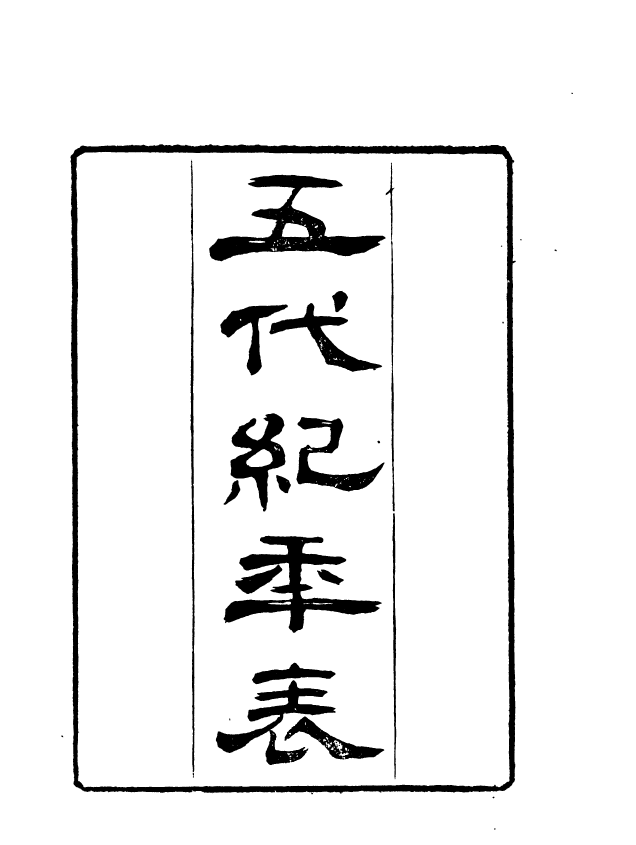 五代紀年表